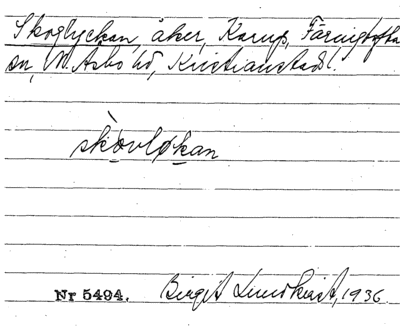 Skoglyckan, åker, Karup, Färingtofta
sn, N. Åsbo hd, Kristianstads l.
skòvløkan
Nr 5494. Birgit Lundkvist, 1936